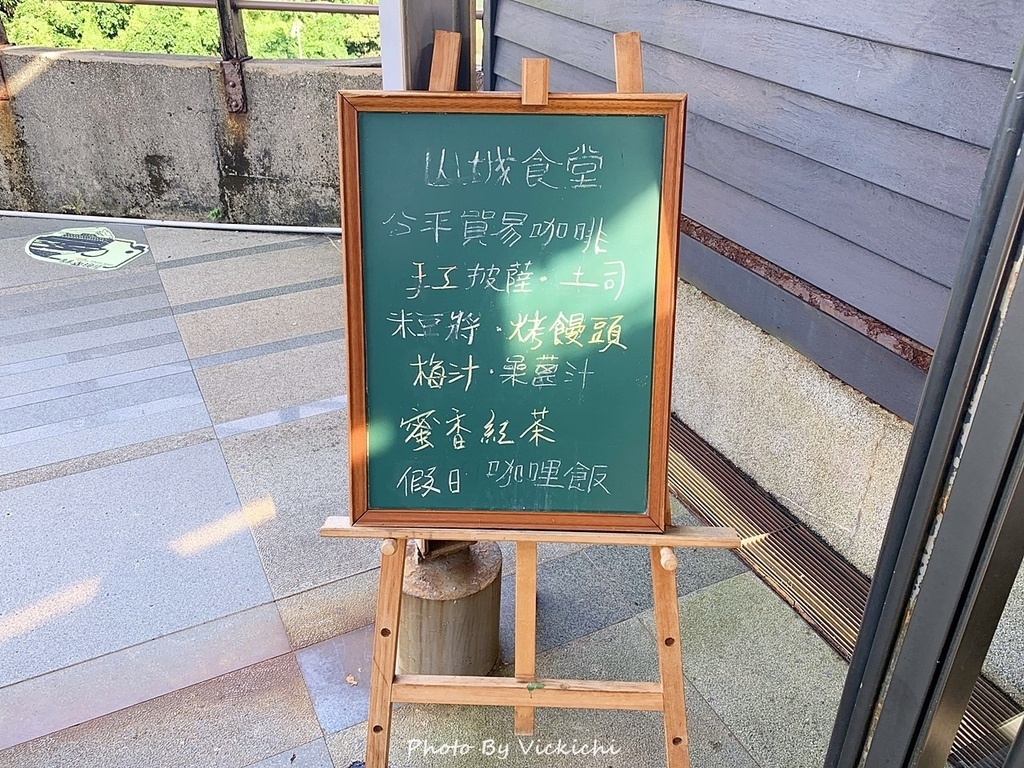 山城食堂
公平貿易咖啡
手工披薩·土司
米豆將·烤饅頭
梅汁·桑薑汁
蜜香紅茶
假日 咖哩飯
Photo By Vickichi